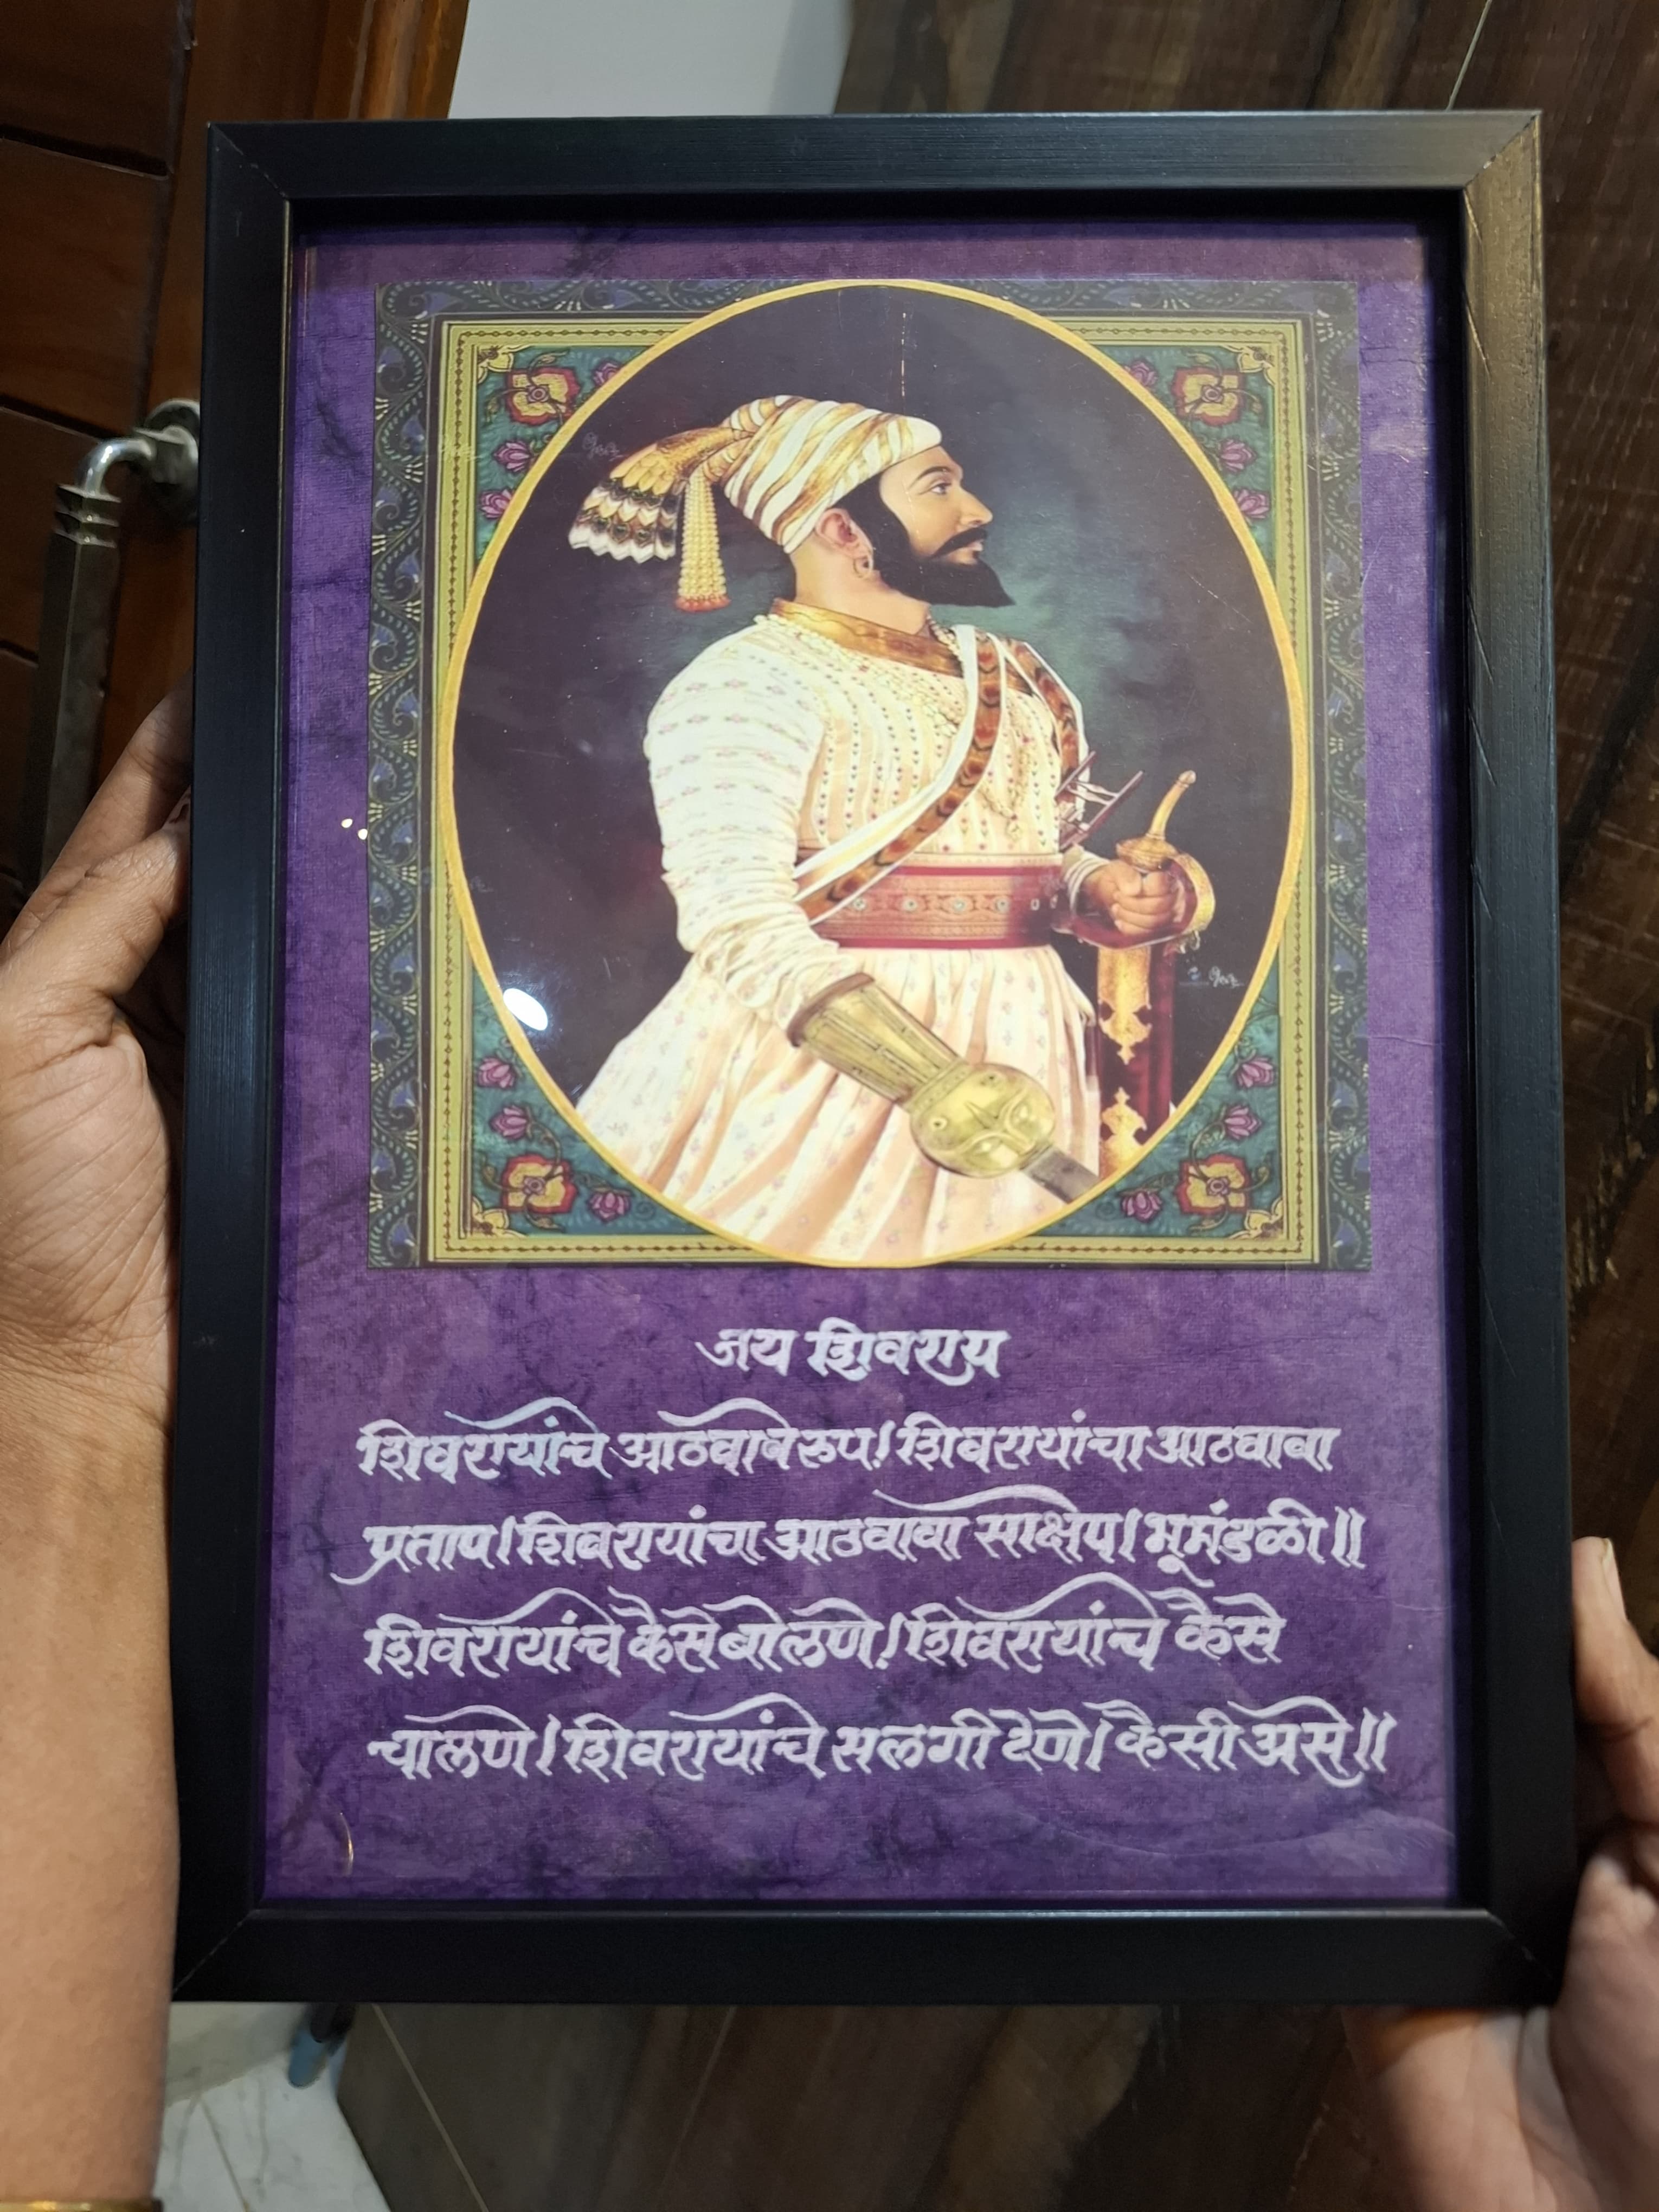 जय शिवराय
शिवरायांचे आठवावे रुप। शिवरायांचा आठवावा
प्रताप। शिवरायांचा आठवावा साक्षेप। भूमंडळी॥
शिवरायांचे कैसे बोलणे। शिवरायांचे कैसे
चालणे। शिवरायांचे सलगी देणे। कैसी असे॥